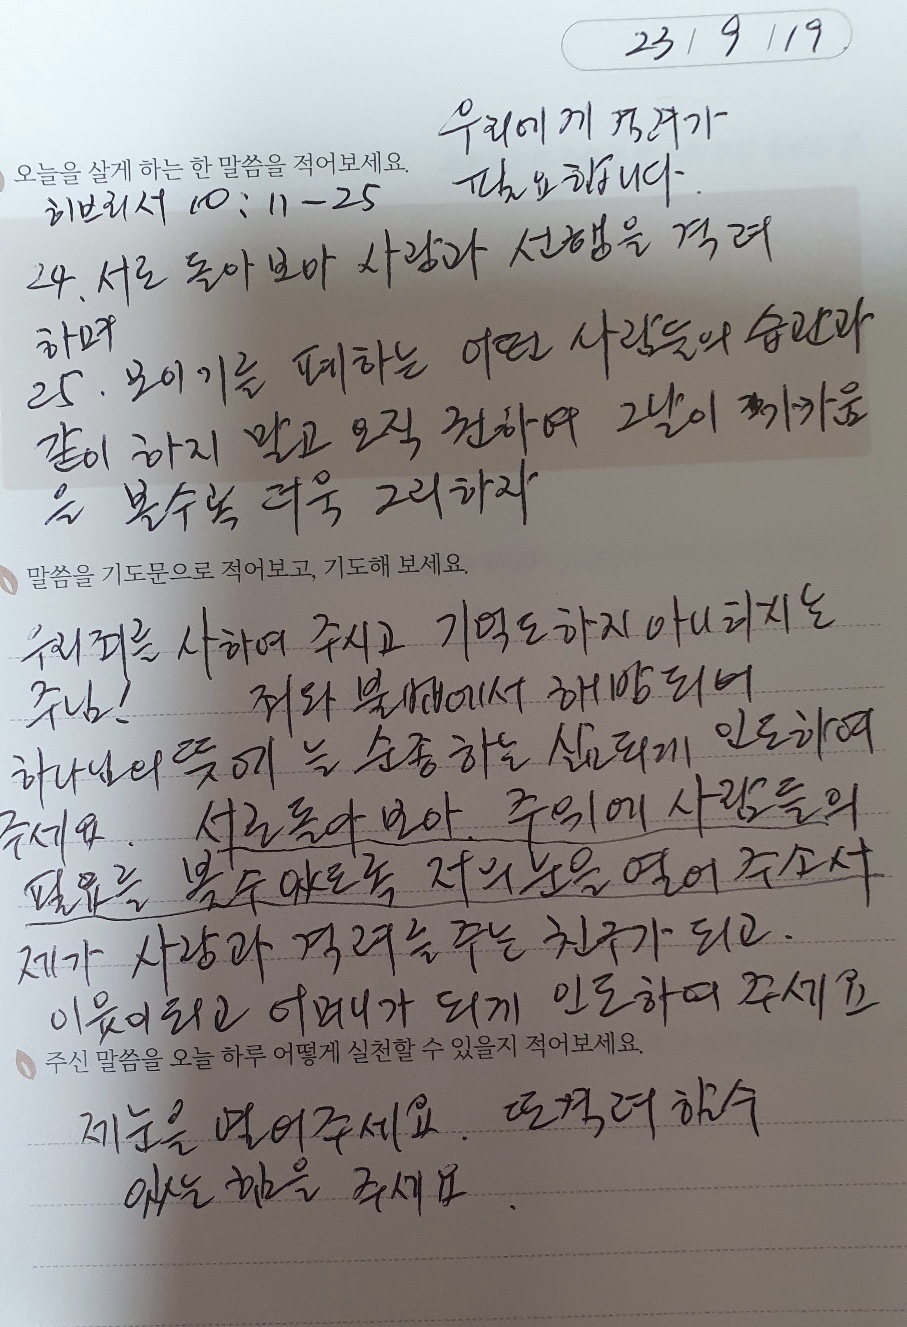 23 / 9 / 19
우리에게 격려가
필요합니다.
오늘을 살게 하는 한 말씀을 적어보세요.
히브리서 10 : 11 - 25
24. 서로 돌아보아 사랑과 선행을 격려
하며
25. 모이기를 폐하는 어떤 사람들의 습관과
같이 하지 말고 오직 권하여 그날이 가까움
을 볼수록 더욱 그리하자
말씀을 기도문으로 적어보고, 기도해 보세요.
우리죄를 사하여 주시고 기억도하지 아니하시는
주님! 죄와 불법에서 해방되어
하나님의 뜻에 늘 순종하는 삶되게 인도하여
주세요. 서로돌아 보아. 주위에 사람들의
필요를 볼수 있도록 저의눈을 열어 주소서
제가 사랑과 격려를주는 친구가 되고.
이웃이되고 어머니가 되게 인도하여 주세요
주신 말씀을 오늘 하루 어떻게 실천할 수 있을지 적어보세요.
제눈을 열어주세요. 또격려 할수
있는 힘을 주세요.